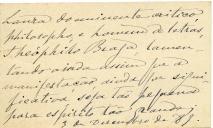 do eminente critico,
philosopho, e homem de letras,
Theophilo Braga, lamen-
tando ainda assim que a
manifestação ainda por signi-
ficativa seja tão pequena
para espirito tão
3 de Dezembro de